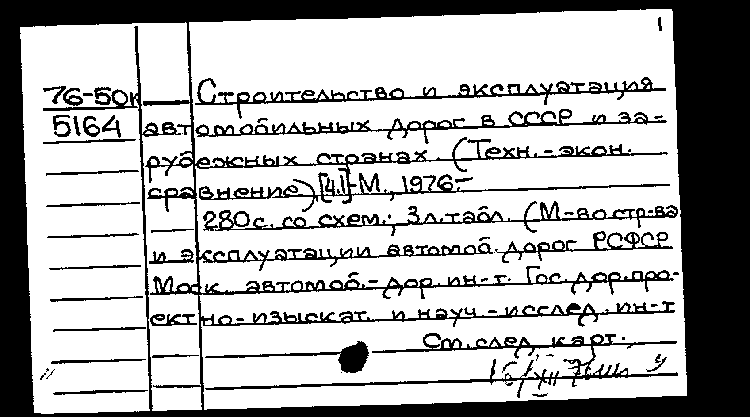 1
76-50к Строительство и эксплуатация
5164 автомобильных дорог в СССР и за-
рубежных странах. (Техн.-экон.
сравнение). [Ч.1]-М., 1976.-
280с. со схем.; 3л.табл. (М-во стр-ва
и эксплуатации автомоб. дорог РСФСР
Моск. автомоб.-дор. ин-т. Гос. дор. про-
ектно-изыскат. и науч.-исслед. ин-т
См. след. карт.
16/XII 76